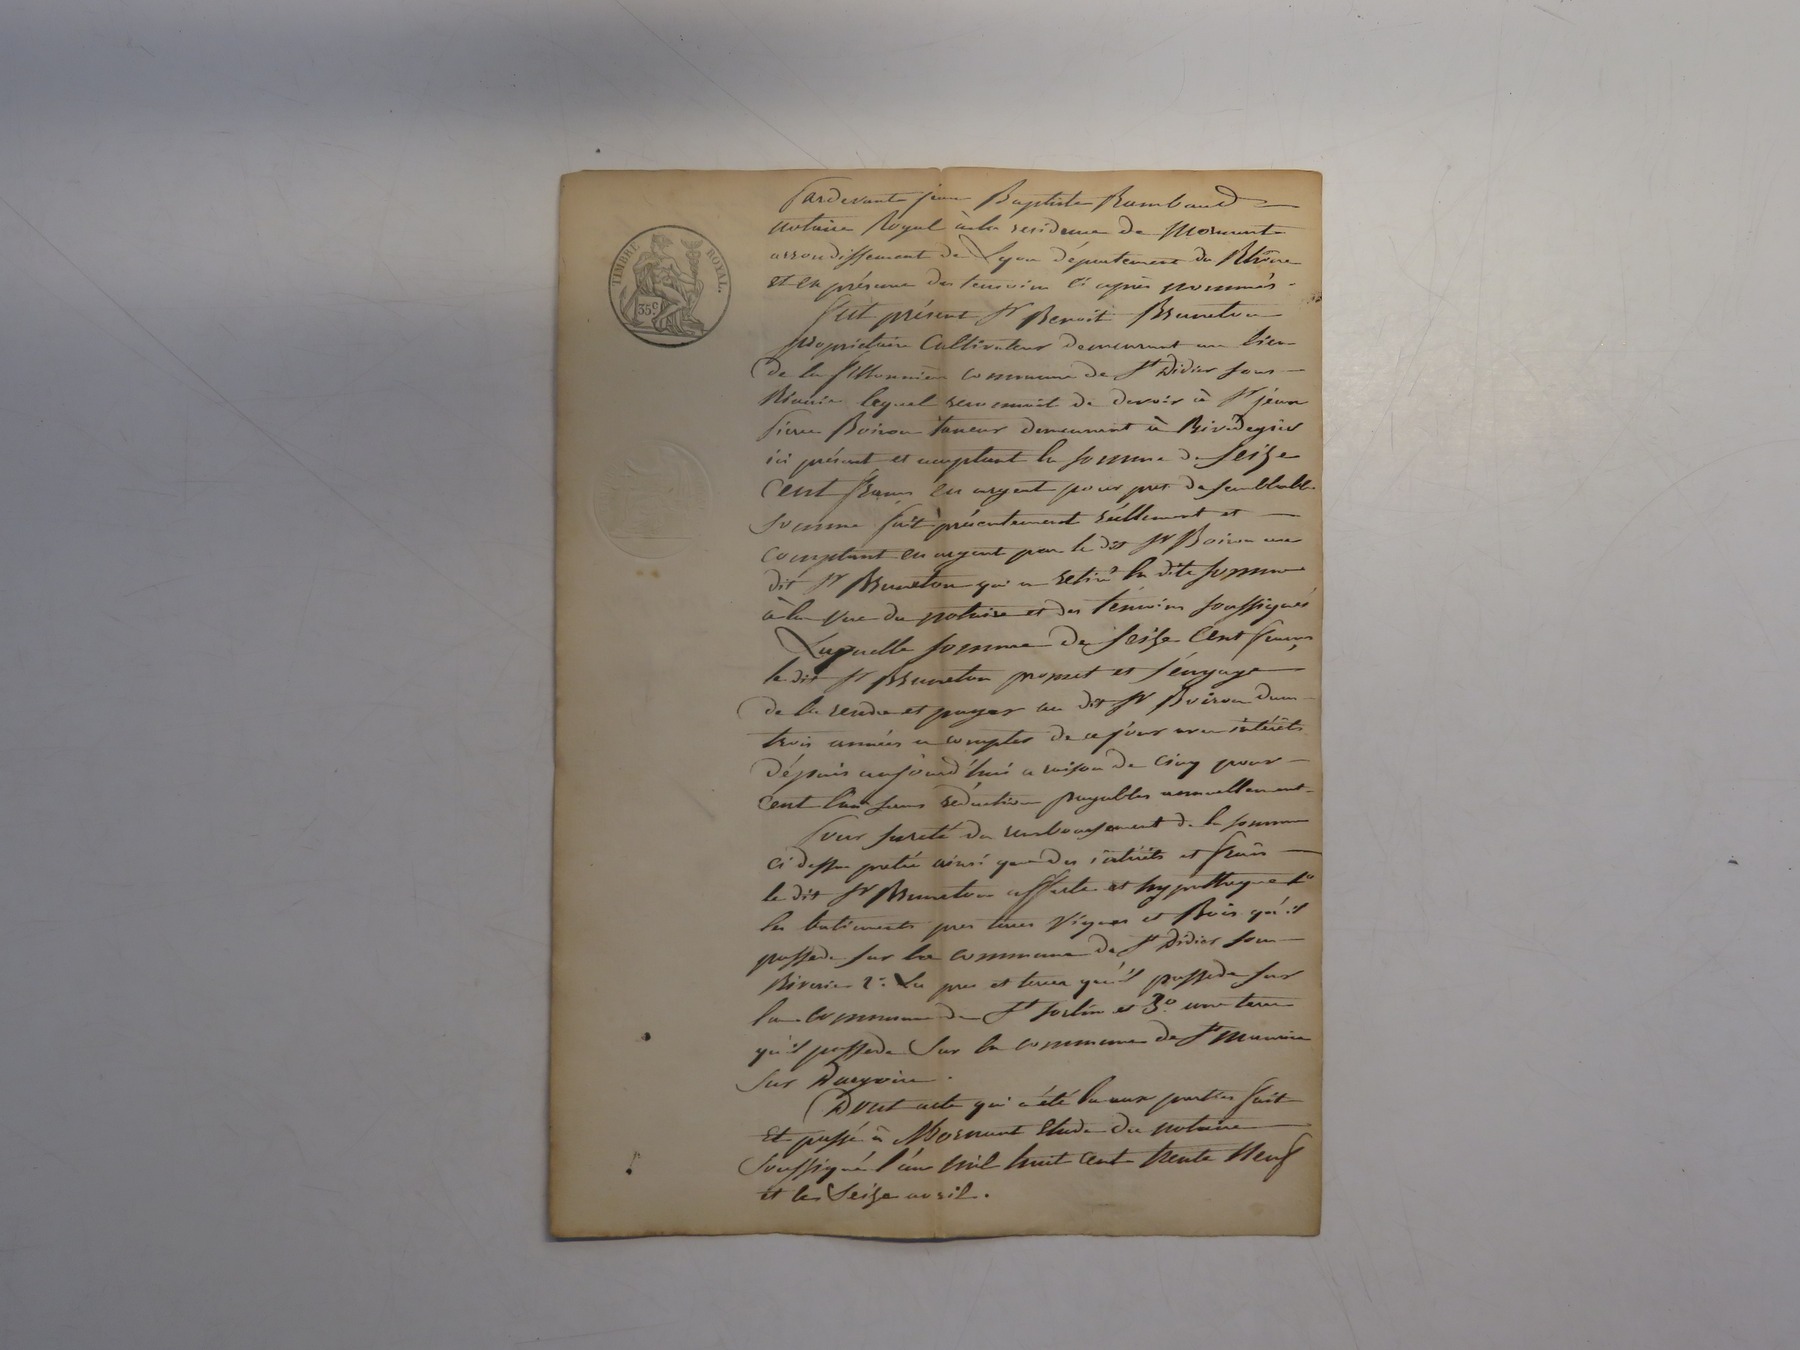 TIMBRE ROYAL.
35 c
Pardevant jean Baptiste Rambaud
notaire Royal à la residence de Mornant
arrondissement de Lyon département du Rhône
et en présence des temoins ci après nommés.
fut présent Sr Benoit Bruneton
propriétaire Cultivateur demeurant au lieu
de la commune de St Didier sous
Riverie lequel reconnoit de devoir à Sr jean
Pierre Boiron taneur demeurant à Rivedegier
ici présent et acceptant la somme de Seize
Cent francs en argent pour pret de semblable
Somme fait présentement réellement et
comptant en argent par le dit Sr Boiron au
dit Sr Bruneton qui a retiré la dite somme
à la vue du notaire et des témoins soussignés
Laquelle somme de Seize Cent francs
le dit Sr Bruneton promet et s'engage
de la rendre et payer au dit Sr Boiron dans
trois années a compter de ce jour avec intérêts
dépuis aujourd'hui a raison de cinq pour
cent l'an sans réduction payables annuellement
Pour sureté du remboursement de la somme
ci dessus pretée ainsi que des intérêts et frais
le dit Sr Bruneton affecte et hypotheque 1o
les batiments pres terres vignes et Bois qu'il
possede sur la commune de St Didier sous
Riverie 2o Les pres et terres qu'il possede sur
la commune de St Sorlin et 3o une terre
qu'il possede Sur la commune de St Maurice
sur Dargoire.
Dont acte qui a été lu aux parties fait
et passé à Mornant étude du notaire
Soussigné l'an mil huit cent trente neuf
et le Seize avril.